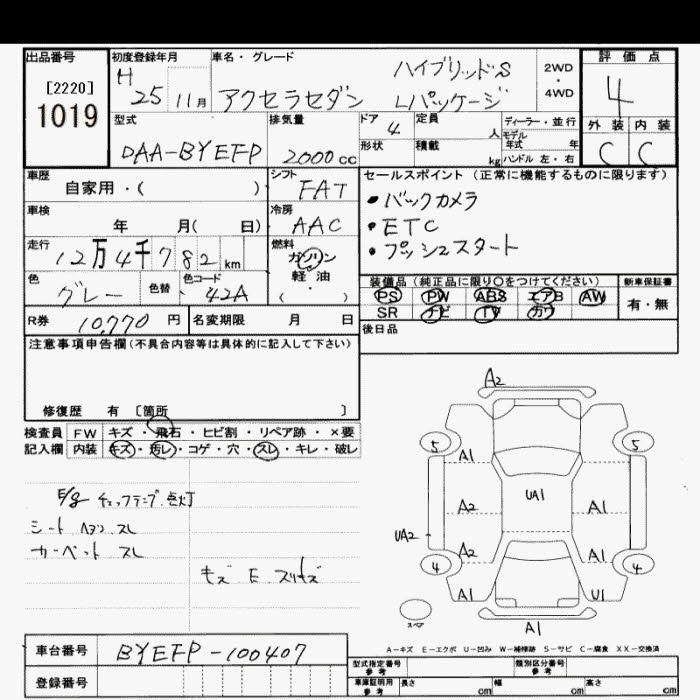 出品番号 初度登録年月 車名・グレード 評価点
[2220] H ハイブリッドS 2WD
1019 25 11月 アクセラセダン Lパッケージ ・4WD 4
型式 排気量 ドア 4 定員 人 ディーラー・並行 外装 内装
モデル年式 年
DAA-BYEFP 2000cc 形状 積載 kg ハンドル 左・右 C C
車歴 シフト セールスポイント(正常に機能するものに限ります)
自家用・( ) FAT ・バックカメラ
車検 年 月( 日) 冷房 AAC ・ETC
走行 12万4千782km 燃料 ガソリン ・プッシュスタート
色 グレー 色替 色コード 42A 軽油 ・( )
装備品(純正品に限り○をつけてください) 新車保証書
PS PW ABS エアB AW 有・無
SR ナビ TV カワ
R券 10,770円 名変期限 月 日 後日品
注意事項申告欄(不具合内容等は具体的に記入して下さい)
修復歴 有 〔箇所 〕
検査員 FW キズ・飛石・ヒビ割・リペア跡・×要
記入欄 内装 キズ・汚レ・コゲ・穴・スレ・キレ・破レ
E/g チェックランプ点灯
シート スレ
カーペット スレ
キズ E スリキズ
A2
5 5
A1
A2 UA1 A1
UA2
A2 A1
4 4
A1 U1
スペア A1
A-キズ E-エクボ U-凹み W-補修跡 S-サビ C-腐食 XX-交換済
車台番号 BYEFP-100407
型式指定番号 参考 類別区分番号 参考
登録番号
車庫証明用 参考 長さ cm 幅 cm 高さ cm